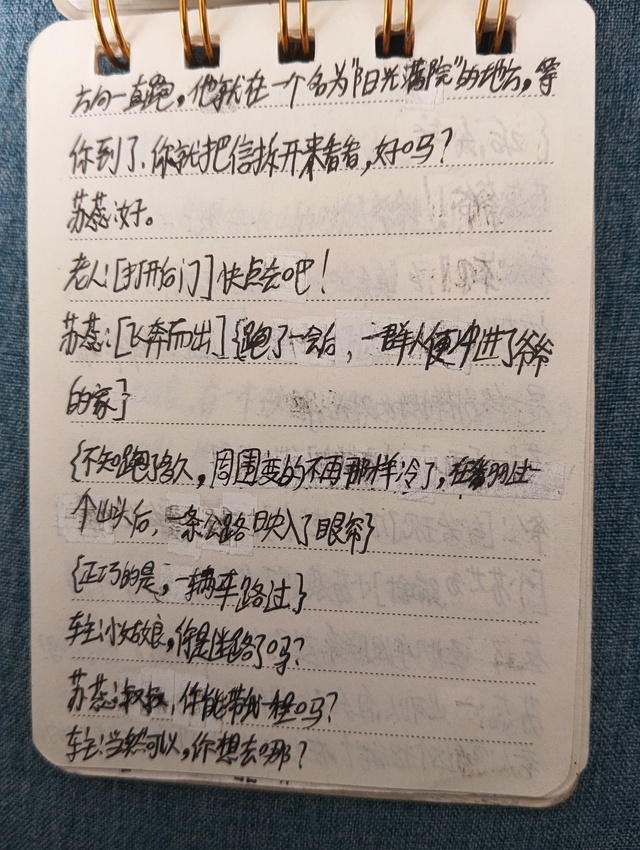 方向一直跑，他就在一个名为"阳光满院"的地方，等
你到了，你就把信拆开来看看，好吗？
苏蕊：好。
老人：[打开后门]快点去吧！
苏蕊：[飞奔而出]{跑了一会后，一群人便冲进了爷爷
的家}
{不知跑了多久，周围变的不再那样冷了，在翻过一
个山头后，一条公路映入了眼帘}
{正巧的是，一辆车路过}
车主：小姑娘，你是迷路了吗？
苏蕊：叔叔，你能带我一程吗？
车主：当然可以，你想去哪？